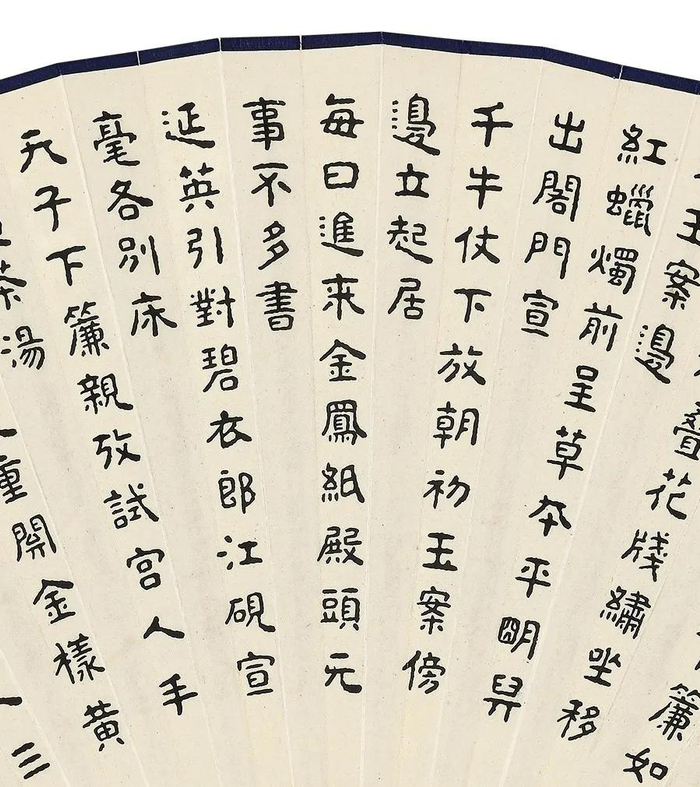 簾如
疊花牋繡坐移
玉案邊
紅蠟燭前呈草本平明舁
出閣門宣
千牛仗下放朝初玉案傍
邊立起居
每日進來金鳳紙殿頭元
事不多書
延英引對碧衣郎江硯宣
毫各別床
天子下簾親攷試宮人手
茶湯
重關金樣黃
三